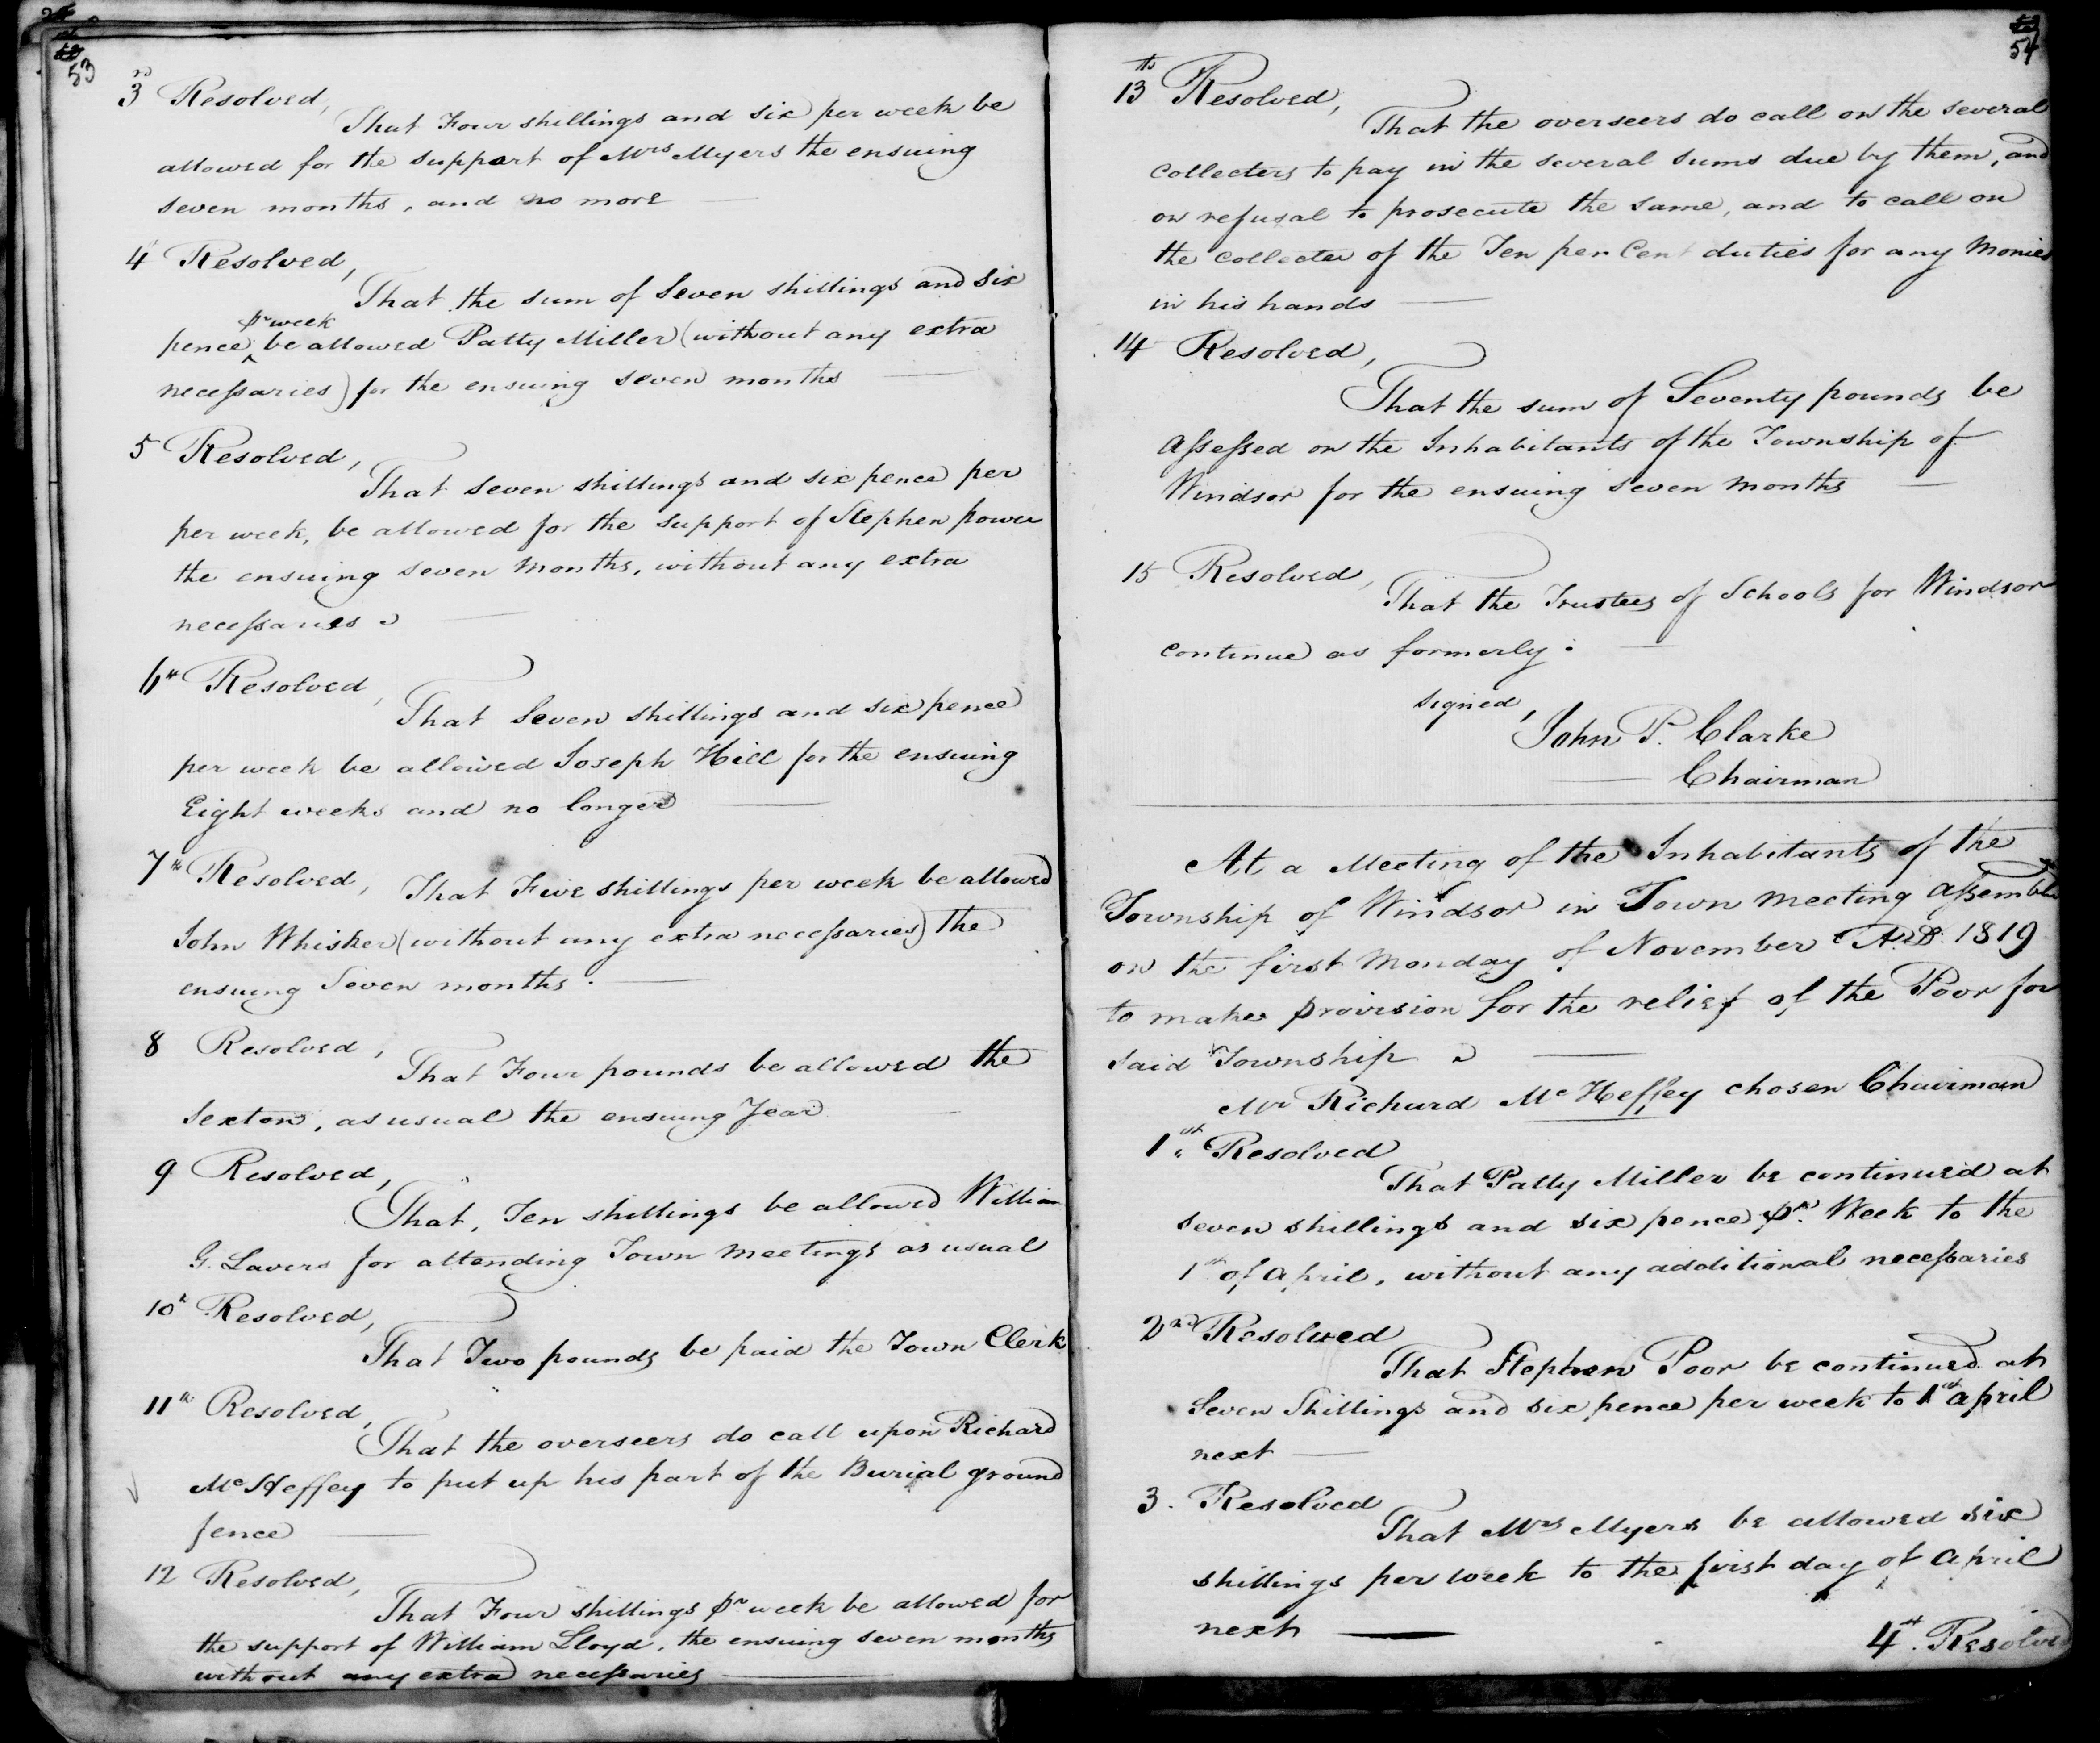 53
3rd Resolved,
That Four shillings and six per week be
allowed for the support of Mrs Myers the ensuing
seven months, and no more
4 Resolved,
That the sum of Seven shillings and six
pr week
pence be allowed Patty Miller (without any extra
necessaries) for the ensuing seven months
5 Resolved,
That seven shillings and six pence per
per week, be allowed for the support of Stephen power
the ensuing seven months, without any extra
necessaries
6th Resolved,
That Seven shillings and six pence
per week be allowed Joseph Hill for the ensuing
Eight weeks and no longer
7th Resolved, That Five shillings per week be allowed
John Whisker (without any extra necessaries) the
ensuing Seven months.
8 Resolved,
That Four pounds be allowed the
Sexton, as usual the ensuing Year
9 Resolved,
That, Ten shillings be allowed William
G. Lavers for attending Town meetings as usual
10th Resolved,
That Two pounds be paid the Town Clerk
11th Resolved,
That the overseers do call upon Richard
McHeffey to put up his part of the Burial ground
fence
12 Resolved,
That Four shillings pr week be allowed for
the support of William Lloyd, the ensuing seven months
without any extra necessaries
54
13th Resolved,
That the overseers do call on the several
Collecters to pay in the several sums due by them, and
on refusal to prosecute the same, and to call on
the Collecter of the Ten per Cent duties for any Monies
in his hands
14 Resolved,
That the sum of Seventy pounds be
Assessed on the Inhabitants of the Township of
Windsor for the ensuing seven months
15 Resolved,
That the Trustees of Schools for Windsor
continue as formerly.
signed,
John P. Clarke
Chairman
At a Meeting of the Inhabitants of the
Township of Windsor in Town meeting assembled
on the first Monday of November A.D. 1819
to make provision for the relief of the Poor for
said Township
Mr Richard McHeffey chosen Chairman
1st Resolved
That Patty Miller be continued at
seven shillings and six pence pr. Week to the
1st of April, without any additional necessaries
2nd Resolved
That Stephen Poor be continued at
Seven Shillings and six pence per week to 1st april
next
3. Resolved
That Mrs Myers be allowed six
shillings per week to the first day of April
next
4th. Resolved